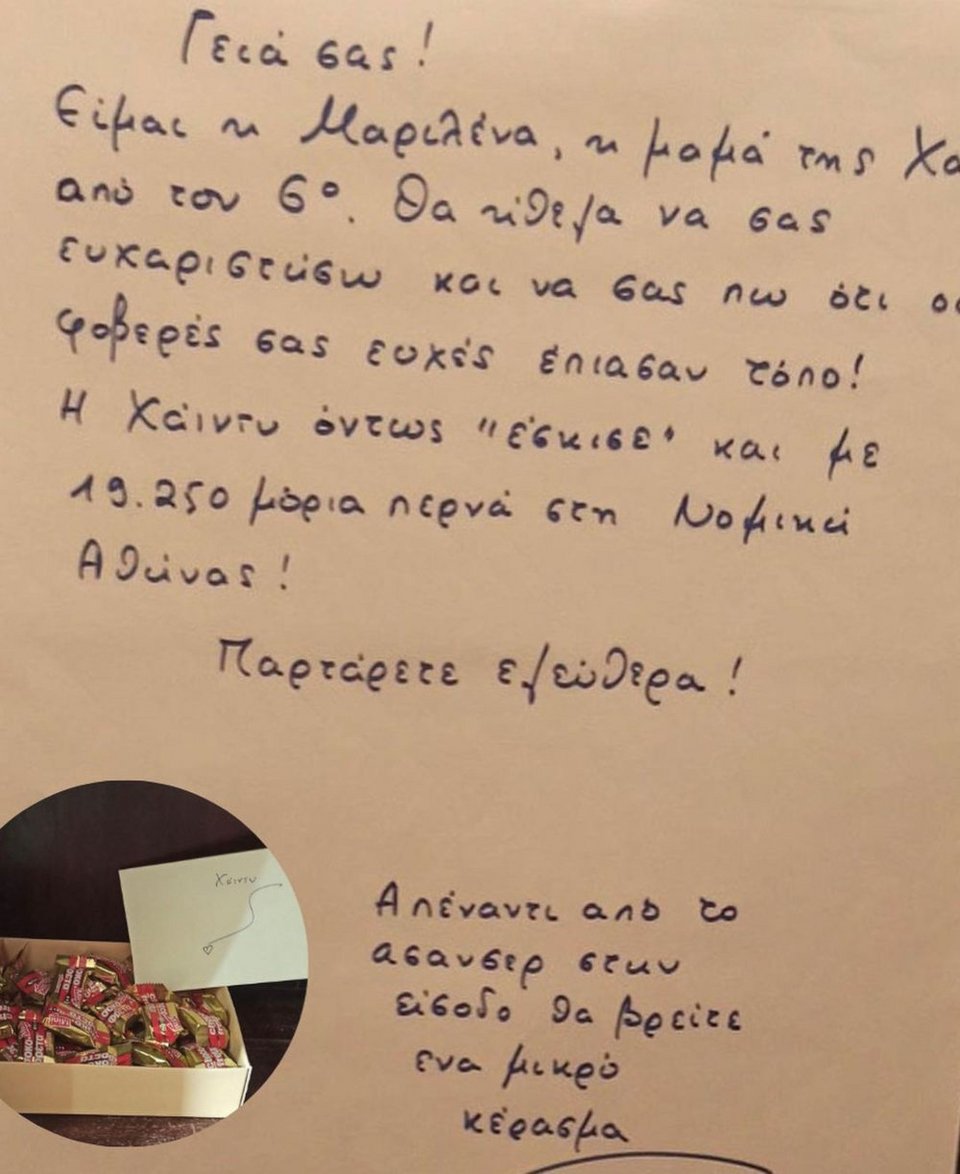 Γειά σας!
Είμαι η Μαριλένα, η μαμά της Χα
από τον 6º. Θα ήθελα να σας
ευχαριστήσω και να σας πω ότι οι
φοβερές σας ευχές έπιασαν τόπο!
Η Χάιντυ όντως "έσκισε" και με
19.250 μόρια περνά στη Νομική
Αθήνας!
Παρτάρετε ελεύθερα!
Χάιντυ
Απέναντι από το
ασανσερ στην
είσοδο θα βρείτε
ενα μικρό
κέρασμα